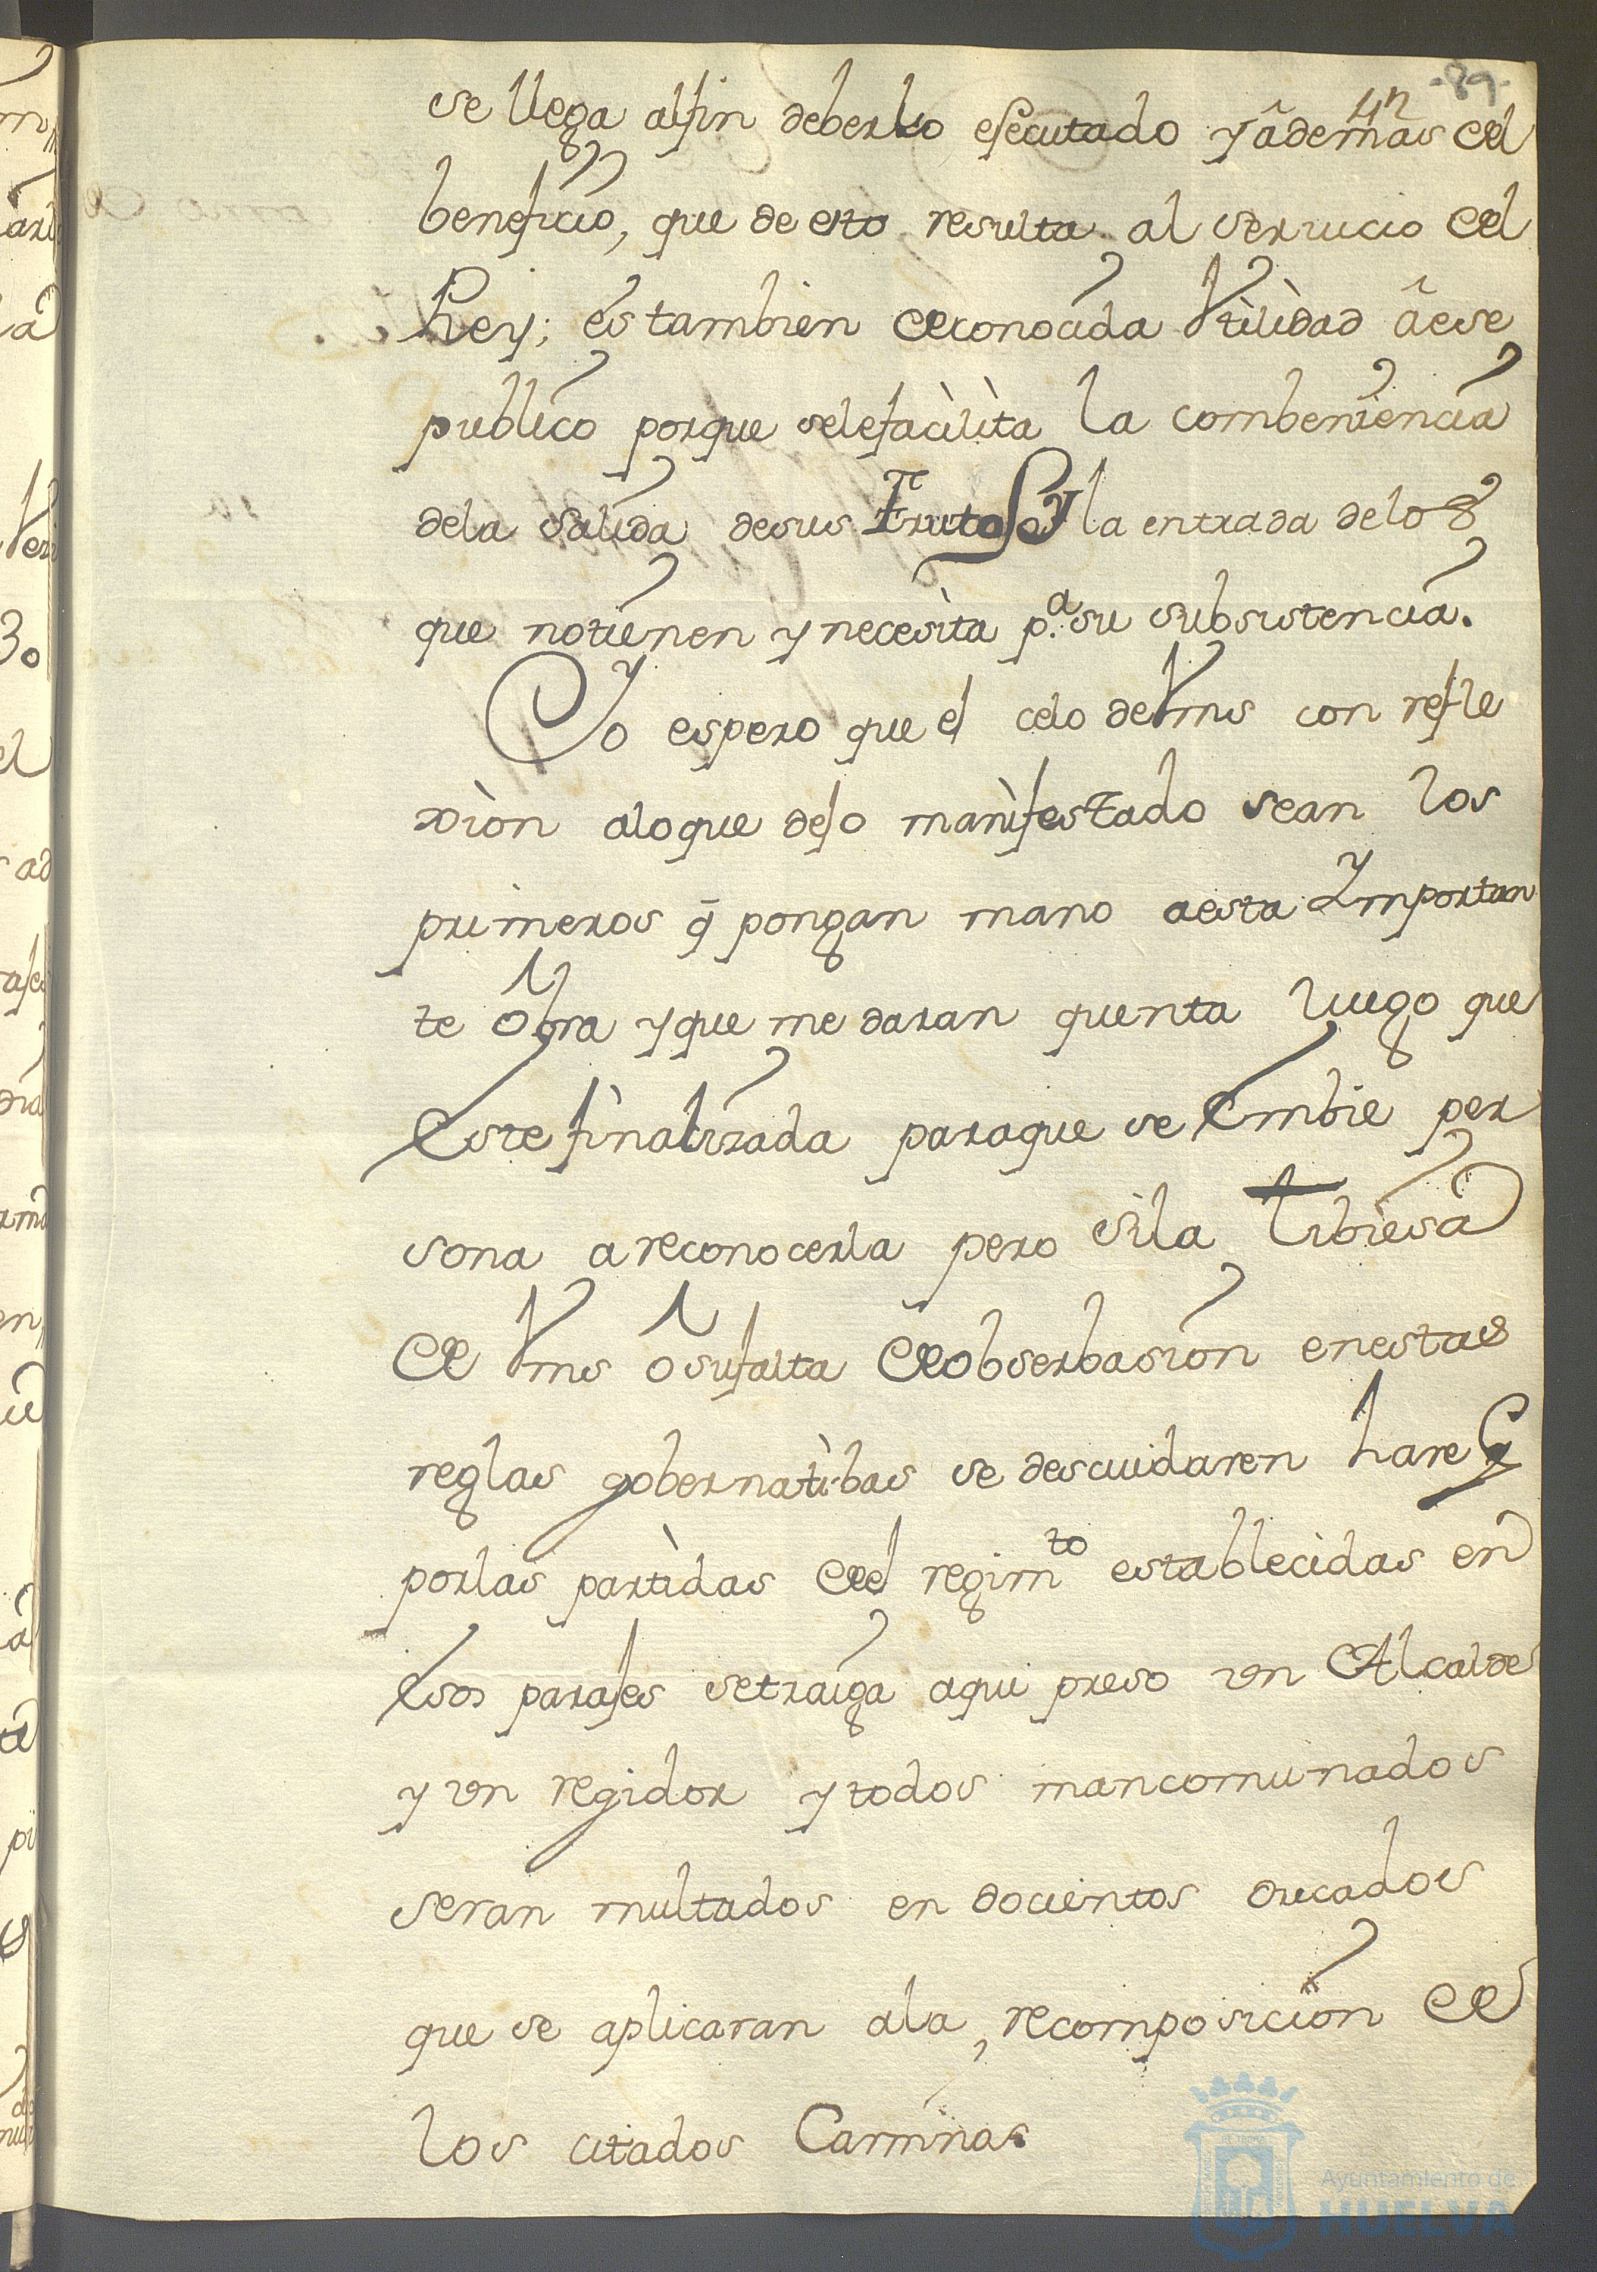 -89-
se llega alfin deberlo efecutado yademas del
beneficio, que de esto resulta al seruicio del
Rey; es tambien deconocida Vtilidad aese
publico porque selefacilita la combeniencia
dela salida desus Frutos y la entrada delos
que notienen y necesita p.ª su subsistencia.
Yo espero que el celo deVms con refle
xion aloque dejo manifestado sean los
primeros q̄ pongan mano aesta Ymportan
te obra yque me daran quenta luego que
Este finalizada paraque se Embie per
sona areconocerla pero sila tibiesa
de Vms o sufalta deobserbasion enestas
reglas gobernatibas se descuidaren hare q
porlas partidas del regimto establecidas en
Esos parajes setraiga aqui preso vn Alcalde
y vn regidor y todos mancomunados
seran multados en docientos ducados
que se aplicaran ala recomposicion de
los citados Caminos.
Ayuntamiento de
HUELVA